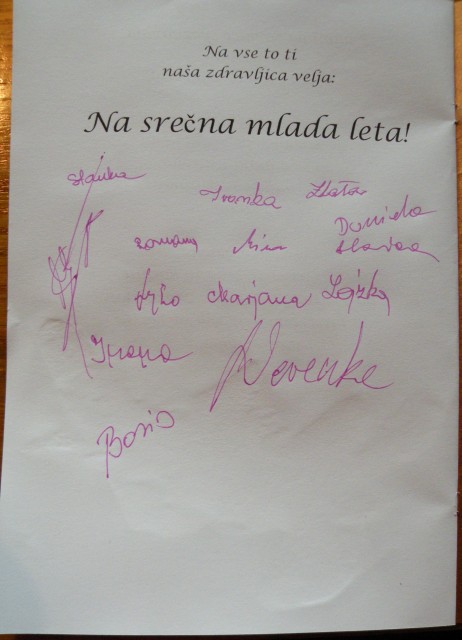 Na vse to ti
naša zdravljica velja:
Na srečna mlada leta!
Slavka
Ivanka Zlatka
Daniela
Romana Slavica
Marjana Lojzka
Ivana Nevenke
Boris